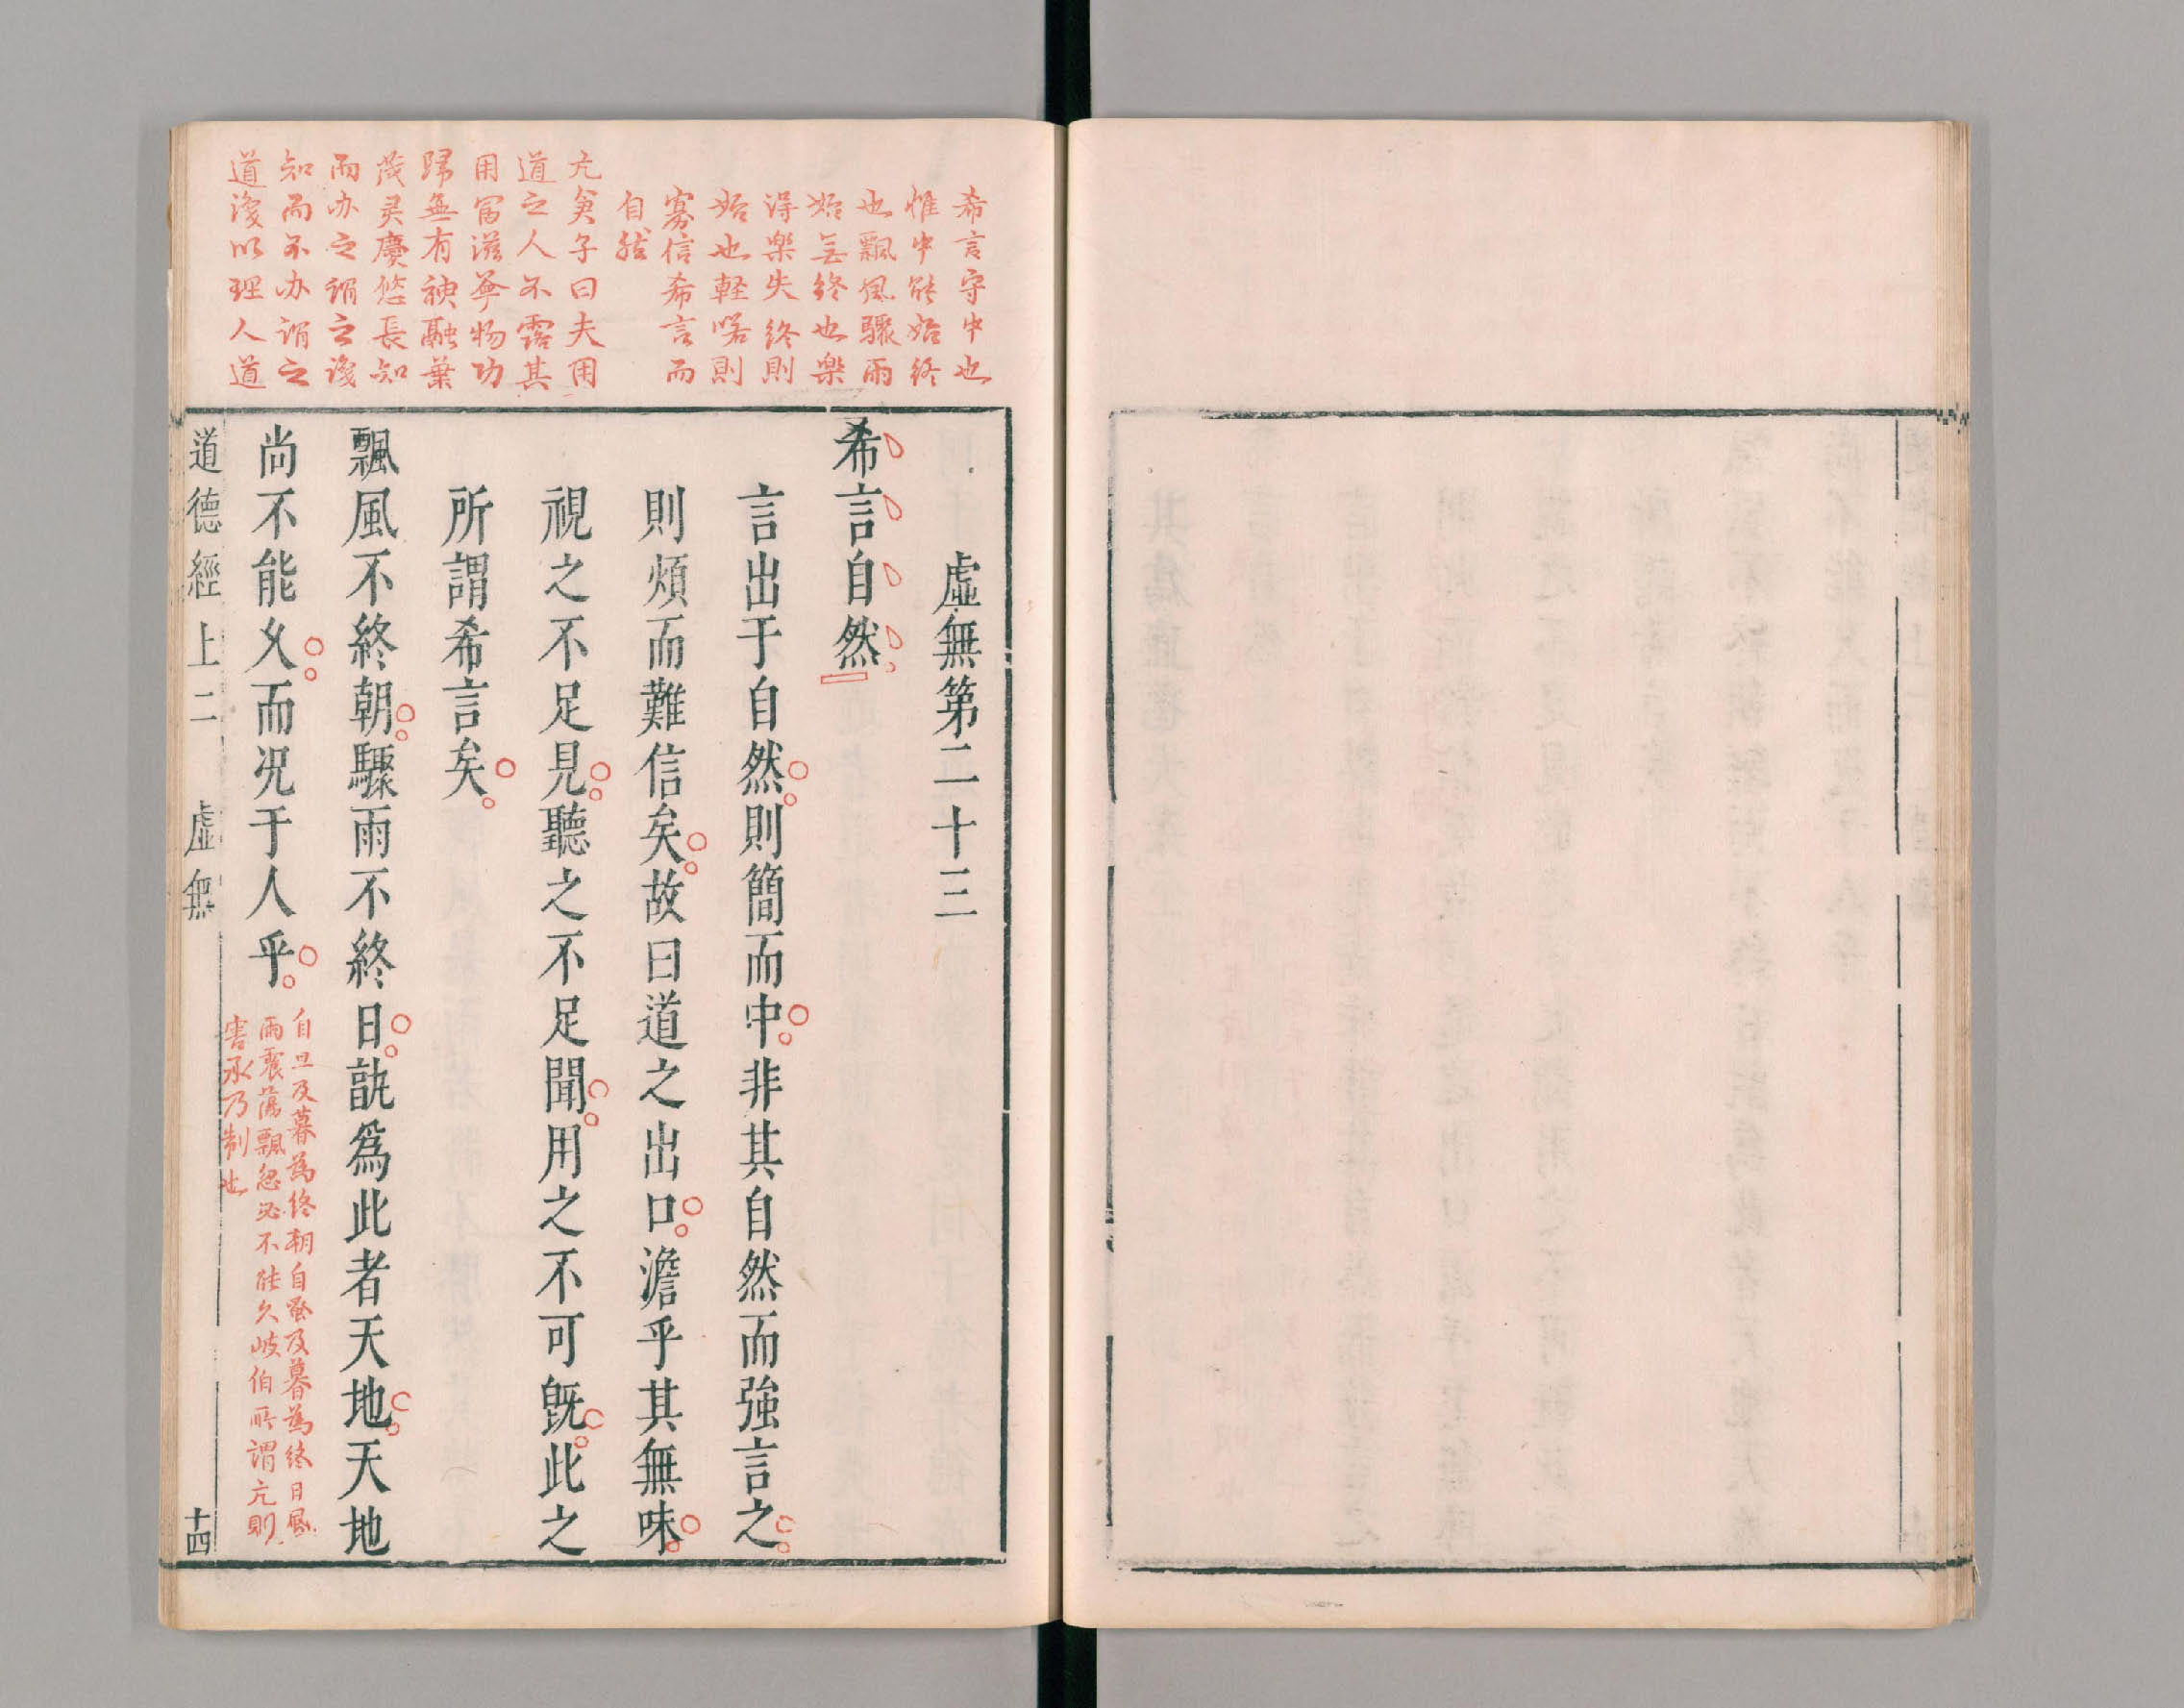 希言守中也
惟中能始終
也飄風驟雨
始无終也樂
得樂失終則
始也軽喏則
寡信希言而
自然
亢倉子曰夫用
道之人不露其
用冨滋萬物功
歸無有神融業
茂灵慶悠長知
而办之謂之識
知而不办謂之
道識以理人道
虛無第二十三
希言自然
言出于自然則簡而中非其自然而強言之
則煩而難信矣故曰道之出口澹乎其無味
視之不足見聽之不足聞用之不可旣此之
所謂希言矣
飄風不終朝驟雨不終日孰爲此者天地天地
尚不能乆而況于人乎
自旦及暮為終朝自蚤及暮為終日風
雨震蕩飄忽必不能久岐伯所謂亢則
害承乃制也
道德經上二 虛無 十四